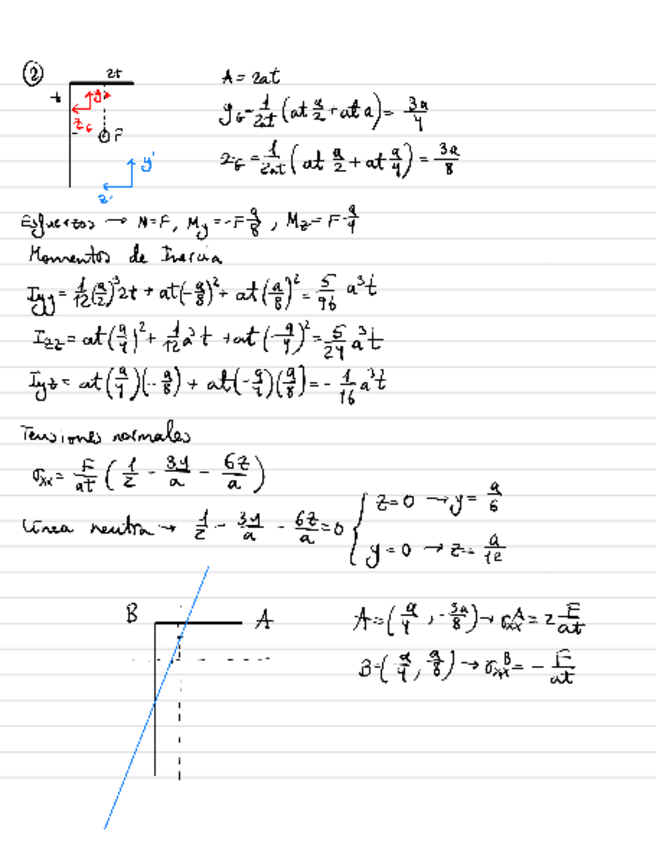 ②
2t
t
y
z_G
F
y'
z'
A = 2at
y_G = 1/2at (at a/2 + at a) = 3a/4
z_G = 1/2at (at a/2 + at a/4) = 3a/8
Esfuerzos → N=F, My=-F a/8, Mz= F a/4
Momentos de Inercia
Iyy = 1/12 (a/2)³ 2t + at(-a/8)² + at(a/8)² = 5/96 a³t
Izz = at(a/4)² + 1/12 a³t + at(-a/4)² = 5/24 a³t
Iyz = at(a/4)(-a/8) + at(-a/4)(a/8) = - 1/16 a³t
Tensiones normales
σxx = F/at (1/2 - 3y/a - 6z/a)
Línea neutra → 1/2 - 3y/a - 6z/a = 0 { z=0 → y= a/6
y=0 → z= a/12
B A
A=(a/4, -3a/8) → σxx^A = 2 F/at
B=(a/4, a/8) → σxx^B = - F/at